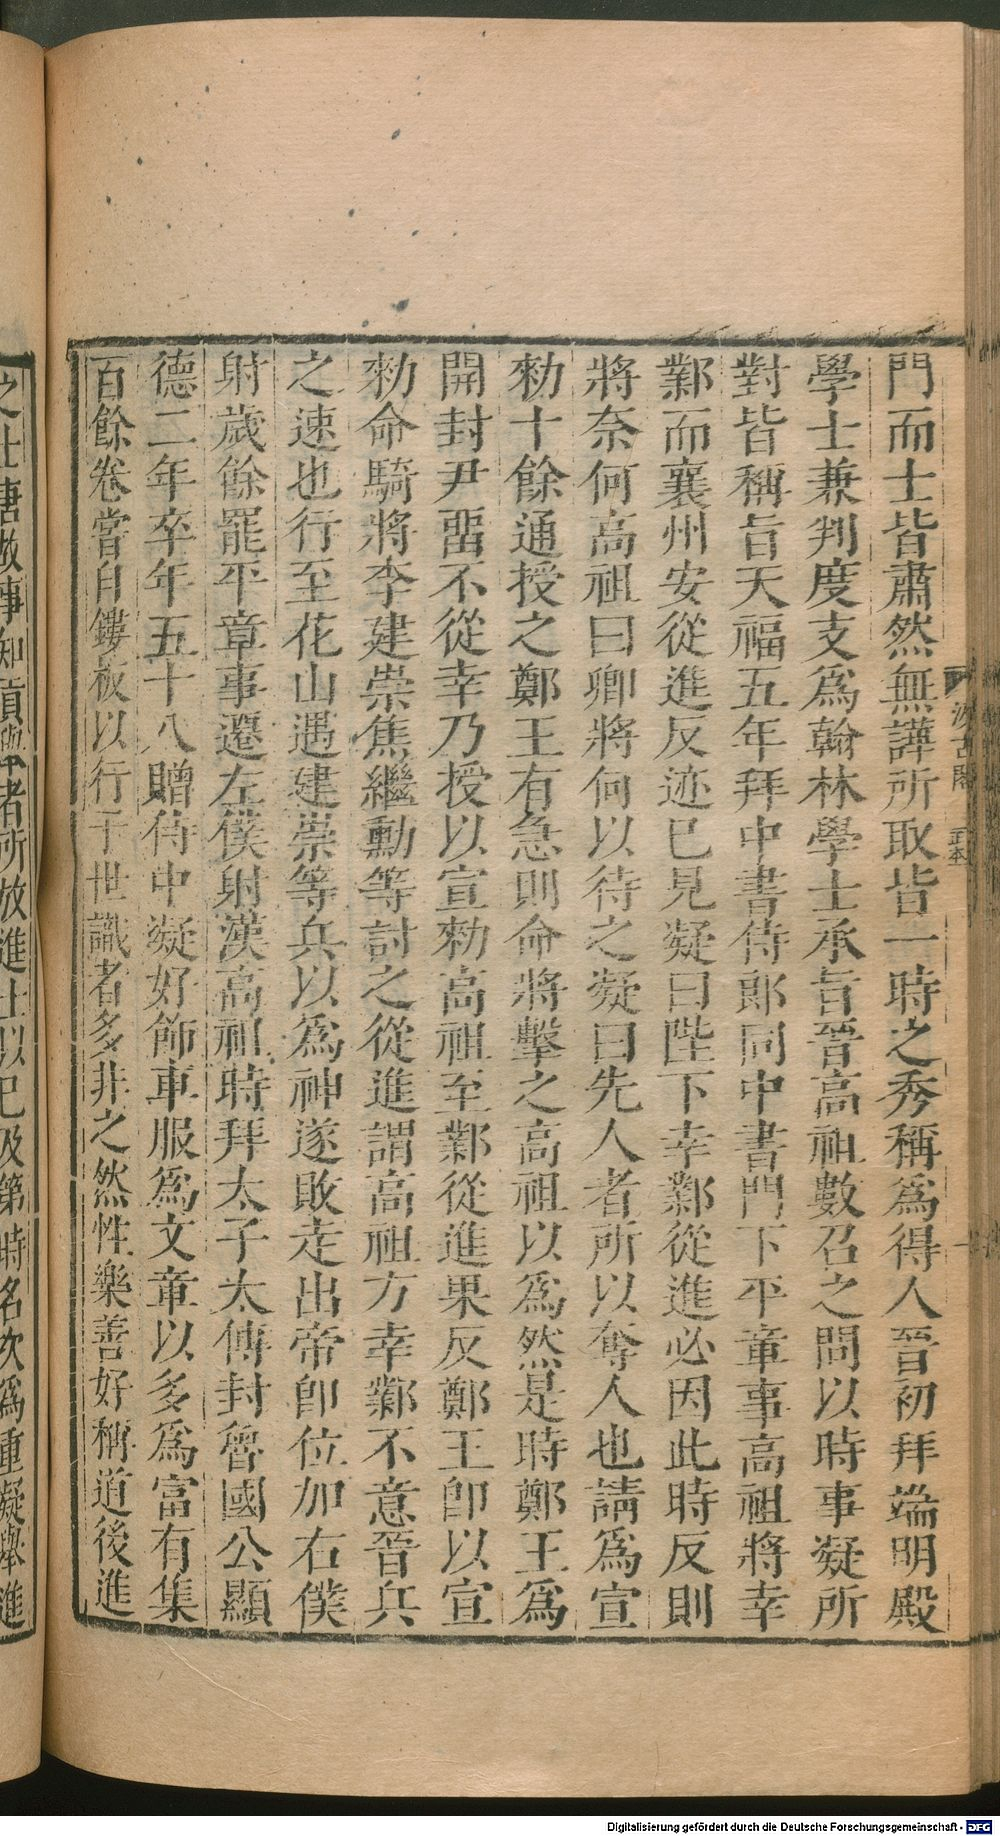 門而士皆肅然無譁所取皆一時之秀稱爲得人晉初拜端明殿
學士兼判度支爲翰林學士承旨晉高祖數召之問以時事凝所
對皆稱旨天福五年拜中書侍郎同中書門下平章事高祖將幸
鄴而襄州安從進反迹已見凝曰陛下幸鄴從進必因此時反則
將奈何高祖曰卿將何以待之凝曰先人者所以奪人也請爲宣
勑十餘通授之鄭王有急則命將擊之高祖以爲然是時鄭王爲
開封尹留不從幸乃授以宣勑高祖至鄴從進果反鄭王卽以宣
勑命騎將李建崇焦繼勳等討之從進謂高祖方幸鄴不意晉兵
之速也行至花山遇建崇等兵以爲神遂敗走出帝卽位加右僕
射歲餘罷平章事遷左僕射漢高祖時拜太子太傅封魯國公顯
德二年卒年五十八贈侍中凝好飾車服爲文章以多爲富有集
百餘卷嘗自鏤板以行于世識者多非之然性樂善好稱道後進
之士唐故事知貢舉者所放進士以已及第時名次爲重凝舉進
汲古閣
Digitalisierung gefördert durch die Deutsche Forschungsgemeinschaft - DFG